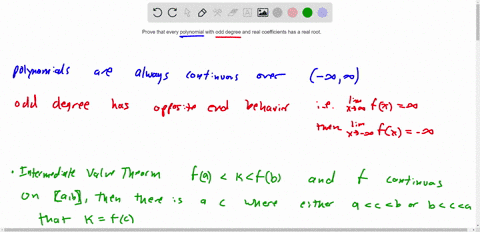 Prove that every polynomial with odd degree and real coefficients has a real root.
polynomials are always continuous over (-∞,∞)
odd degree has opposite end behavior i.e. lim x→∞ f(x) = ∞
then lim x→-∞ f(x) = -∞
• Intermediate Value Theorem f(a) < K < f(b) and f continuous
on [a,b], then there is a c where either a<c<b or b<c<a
that K = f(c)